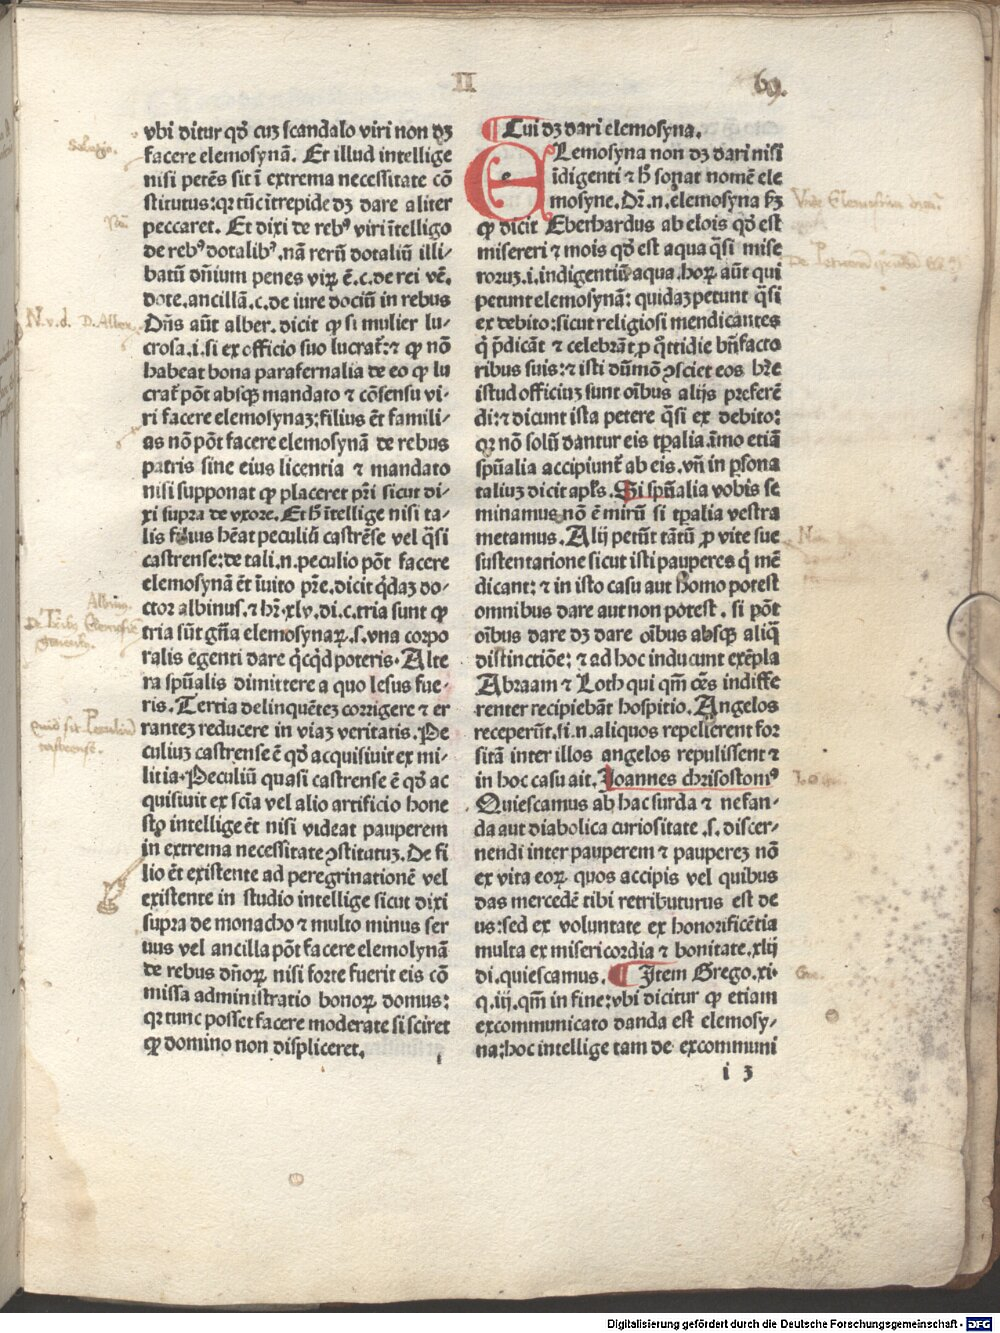 II
69.
vbi ditur qđ cuꝫ scandalo viri non dꝫ
facere elemosynã. Et illud intellige
nisi petẽs sit ĩ extrema necessitate cõ
stitutus: qꝛ tũc ĩtrepide dꝫ dare aliter
peccaret. Et dixi de rebꝰ viri ĩtelligo
de rebꝰ dotalibꝰ. nã rerũ dotaliũ illi-
batũ dñium penes viꝝ ẽ. c. de rei vẽ.
dote. ancillã. c. de iure dociũ in rebus
Dñs aũt alber. dicit ꝙ si mulier lu-
crosa. i. si ex officio suo lucrat᷑: ⁊ ꝙ nõ
habeat bona parafernalia de eo ꝙ lu
crat᷑ põt absqꝫ mandato ⁊ cõsensu vi-
ri facere elemosynaꝫ: filius ẽt famili-
as nõ põt facere elemosynã de rebus
patris sine eius licentia ⁊ mandato
nisi supponat ꝙ placeret pr̃i sicut di-
xi supra de vxore. Et h̃ ĩtellige nisi ta-
lis filius hẽat peculiũ castrẽse vel q̃si
castrense: de tali. n. peculio põt facere
elemosynã ẽt ĩuito pr̃e. dicit q̃daꝫ do-
ctor albinus. ⁊ hr̃. xlv. di. c. tria sunt ꝙ
tria sũt gña elemosynaꝝ. s. vna corpo
ralis egenti dare q̃cq̃d poteris. Alte
ra spũalis dimittere a quo lesus fue-
ris. Tertia delinquẽteꝫ corrigere ⁊ er
ranteꝫ reducere in viaꝫ veritatis. Pe
culiuꝫ castrense ẽ qđ acquisiuit ex mi-
litia. Peculiũ quasi castrense ẽ qđ ac
quisiuit ex sciã vel alio artificio hone
sto intellige ẽt nisi videat pauperem
in extrema necessitate ꝯstitutuꝫ. De fi
lio ẽt existente ad peregrinationẽ vel
existente in studio intellige sicut dixi
supra de monacho ⁊ multo minus ser
uus vel ancilla põt facere elemosynã
de rebus dñoꝝ nisi forte fuerit eis cõ
missa administratio bonoꝝ domus:
qꝛ tunc posset facere moderate si sciret
ꝙ domino non displiceret.
Cui dꝫ dari elemosyna.
ELemosyna non dꝫ dari nisi
ĩdigenti ⁊ h̃ sonat nomẽ ele
mosyne. Dr̃. n. elemosyna ẜꝫ
ꝙ dicit Eberhardus ab elois qđ est
misereri ⁊ mois qđ est aqua q̃si mise
roruꝫ. i. indigentiũ aqua. hoꝝ aũt qui
petunt elemosynã: quidaꝫ petunt q̃si
ex debito: sicut religiosi mendicantes
q̃ p̃dicãt ⁊ celebrãt ꝓ q̃ttidie bñfacto
ribus suis: ⁊ isti dũmõ ꝯsciet eos hr̃e
istud officiuꝫ sunt oĩbus alijs preferẽ
di: ⁊ dicunt ista petere q̃si ex debito:
qꝛ nõ solũ dantur eis tꝑalia. ĩmo etiã
spũalia accipiunt᷑ ab eis. vñ in ꝑsona
taliuꝫ dicit apl̃s. Si spũalia vobis se
minamus nõ ẽ mirũ si tꝑalia vestra
metamus. Alij petũt tãtũ ꝓ vite sue
sustentatione sicut isti pauperes q̃ mẽ
dicant: ⁊ in isto casu aut homo potest
omnibus dare aut non potest. si põt
oĩbus dare dꝫ dare oĩbus absqꝫ aliq̃
distinctiõe: ⁊ ad hoc inducunt exẽpla
Abraam ⁊ Loth qui qm̃ oẽs indiffe
renter recipiebãt hospitio. Angelos
receperũt. si. n. aliquos repellerent for
sitã inter illos angelos repulissent ⁊
in hoc casu ait. Joannes chrisostomꝰ
Quiescamus ab hac surda ⁊ nefan-
da aut diabolica curiositate. s. discer-
nendi inter pauperem ⁊ paupereꝫ nõ
ex vita eoꝝ quos accipis vel quibus
das mercedẽ tibi retributurus est de
us: sed ex voluntate ex honorificẽtia
multa ex misericordia ⁊ bonitate. xlij
di. quiescamus. Item Grego. xi.
q. iij. qm̃ in fine: vbi dicitur ꝙ etiam
excommunicato danda est elemosy-
na: hoc intellige tam de excommuni
i 3
N.v.d. D. Alber.
Albin.
Digitalisierung gefördert durch die Deutsche Forschungsgemeinschaft - DFG